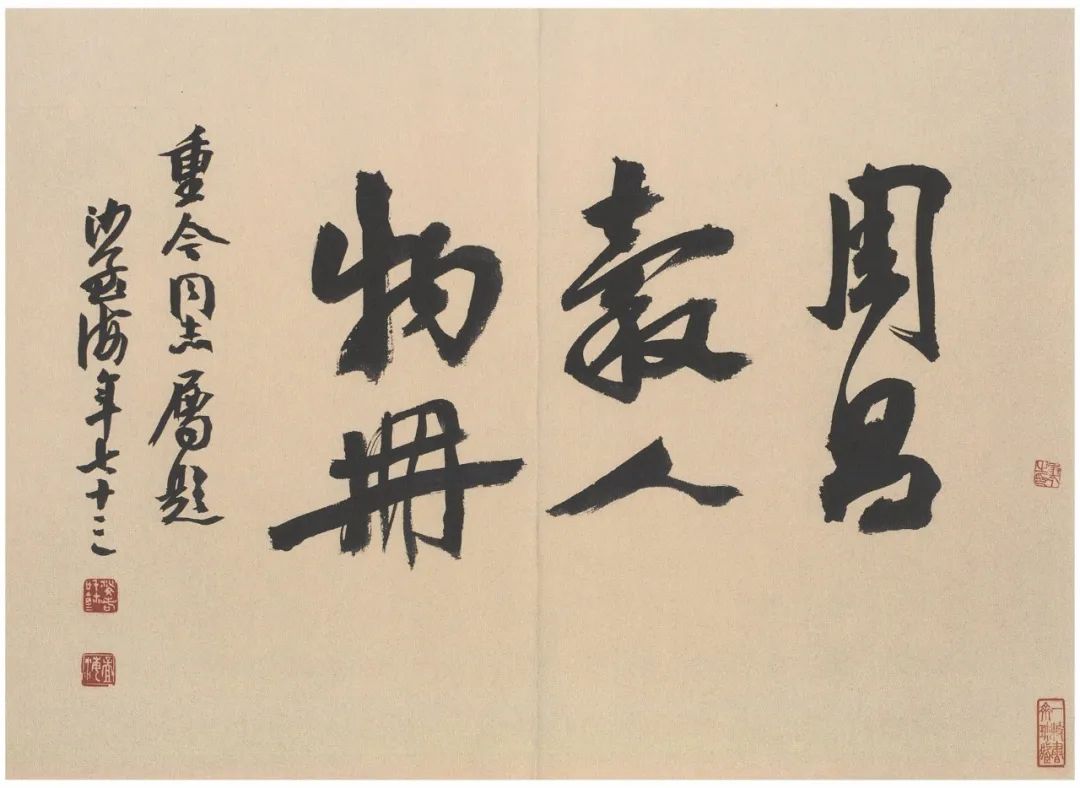 周昌
穀人
物冊
重今同志属題
沙孟海年七十三